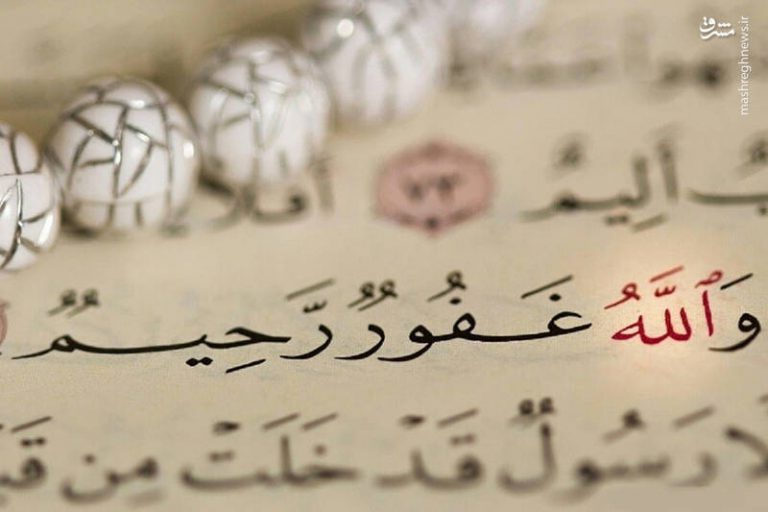 مشرق
mashreghnews.ir
أَلِيمٌ ٧٣ أَفَلَا
وَٱللَّهُ غَفُورٌ رَّحِيمٌ
رَسُولٌ قَدْ خَلَتْ مِن